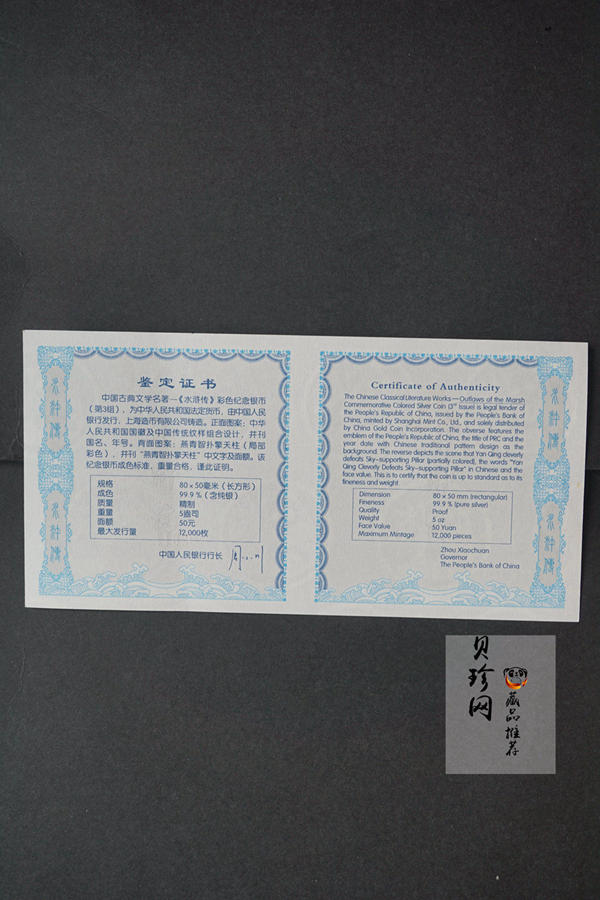 鉴定证书
中国古典文学名著—《水浒传》彩色纪念银币
（第3组），为中华人民共和国法定货币，由中国人民
银行发行，上海造币有限公司铸造。正面图案：中华
人民共和国国徽及中国传统纹样组合设计，并刊
国名、年号。背面图案：燕青智扑擎天柱（局部
彩色），并刊“燕青智扑擎天柱”中文字及面额。该
纪念银币成色标准，重量合格，谨此证明。
规格 80×50毫米（长方形）
成色 99.9%（含纯银）
质量 精制
重量 5盎司
面额 50元
最大发行量 12,000枚
中国人民银行行长
水浒传
水浒传
Certificate of Authenticity
The Chinese Classical Literature Works—Outlaws of the Marsh
Commemorative Colored Silver Coin (3rd Issue) is legal tender of
the People's Republic of China, issued by the People's Bank of
China, minted by Shanghai Mint Co., Ltd., and solely distributed
by China Gold Coin Incorporation. The obverse features the
emblem of the People's Republic of China, the title of PRC and the
year date with Chinese traditional pattern design as the
background. The reverse depicts the scene that Yan Qing cleverly
defeats Sky-supporting Pillar (partially colored), the words "Yan
Qing Cleverly Defeats Sky-supporting Pillar" in Chinese and the
face value. This is to certify that the coin is up to standard as to its
fineness and weight
Dimension 80 × 50 mm (rectangular)
Fineness 99.9 % (pure silver)
Quality Proof
Weight 5 oz
Face Value 50 Yuan
Maximum Mintage 12,000 pieces
Zhou Xiaochuan
Governor
The People's Bank of China
水浒传
水浒传
贝珍网
藏品推荐